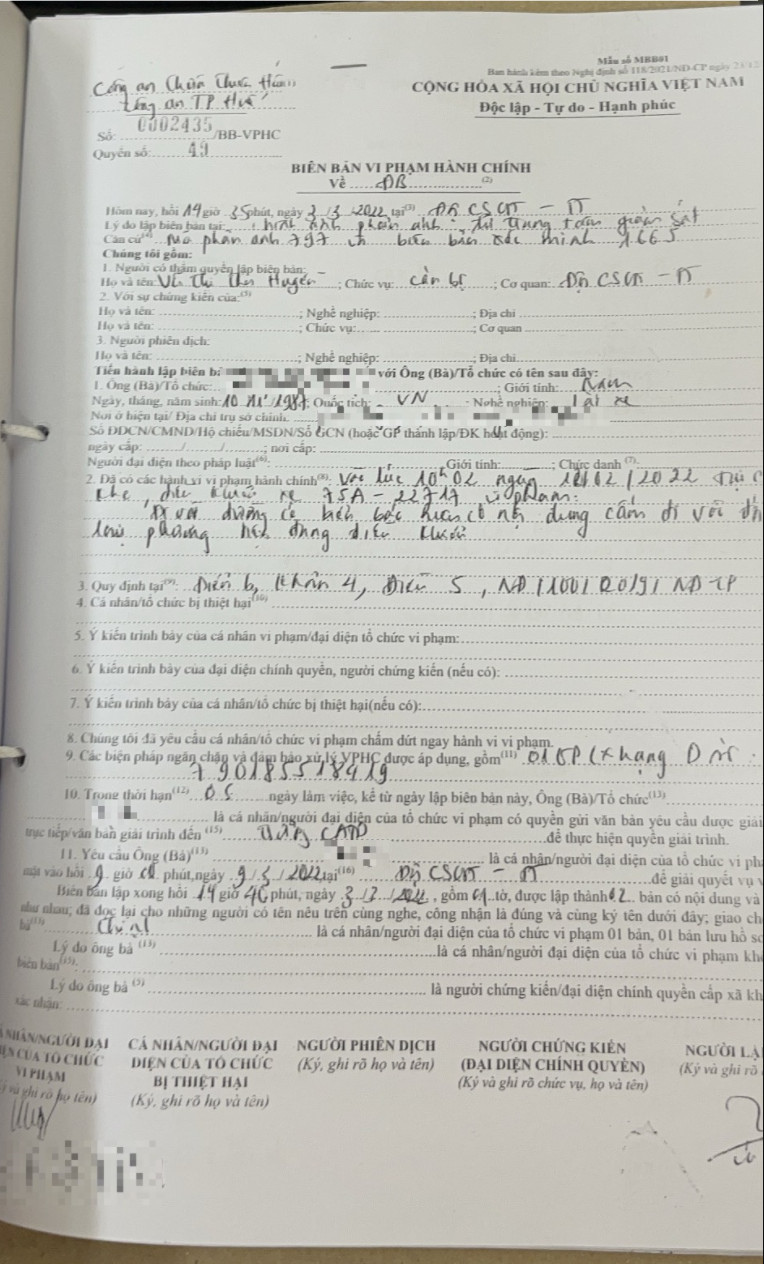 Mẫu số MBB01
Ban hành kèm theo Nghị định số 118/2021/NĐ-CP ngày 23/12
Công an
CỘNG HÒA XÃ HỘI CHỦ NGHĨA VIỆT NAM
Công an TP Huế
Độc lập - Tự do - Hạnh phúc
Số: 0002435/BB-VPHC
Quyển số: 49
BIÊN BẢN VI PHẠM HÀNH CHÍNH
Về ĐB (2)
Hôm nay, hồi 14 giờ 35 phút, ngày 3/3/2022 tại(3) Đội CSGT - TT
Lý do lập biên bản tại: hình ảnh phản ánh từ trung tâm giám sát
Căn cứ(4) Mã phản ánh 797 và biên bản xác minh 1665
Chúng tôi gồm:
1. Người có thẩm quyền lập biên bản:
Họ và tên: Võ Thị Huyền; Chức vụ: cán bộ; Cơ quan: Đội CSGT - TT
2. Với sự chứng kiến của:(5)
Họ và tên: ; Nghề nghiệp: ; Địa chỉ
Họ và tên: ; Chức vụ: ; Cơ quan
3. Người phiên dịch:
Họ và tên: ; Nghề nghiệp: ; Địa chỉ
Tiến hành lập biên b với Ông (Bà)/Tổ chức có tên sau đây:
1. Ông (Bà)/Tổ chức: ; Giới tính: Nam
Ngày, tháng, năm sinh: 10/11/1987; Quốc tịch: VN Nghề nghiệp: Lái xe
Nơi ở hiện tại/ Địa chỉ trụ sở chính:
Số ĐDCN/CMND/Hộ chiếu/MSDN/Số GCN (hoặc GP thành lập/ĐK hoạt động):
ngày cấp: / / ; nơi cấp:
Người đại diện theo pháp luật(6): Giới tính: ; Chức danh (7):
2. Đã có các hành vi vi phạm hành chính(8): Vào lúc 10h02 ngày 12/02/2022 tại
khiển xe 75A-22717 vi phạm:
Đi vào đường có biển báo hiệu có nội dung cấm đi vào đối với
loại phương tiện đang điều khiển
3. Quy định tại(9): Điểm b, Khoản 4, Điều 5, NĐ/100/2019/NĐ-CP
4. Cá nhân/tổ chức bị thiệt hại(10)
5. Ý kiến trình bày của cá nhân vi phạm/đại diện tổ chức vi phạm:
6. Ý kiến trình bày của đại diện chính quyền, người chứng kiến (nếu có):
7. Ý kiến trình bày của cá nhân/tổ chức bị thiệt hại(nếu có):
8. Chúng tôi đã yêu cầu cá nhân/tổ chức vi phạm chấm dứt ngay hành vi vi phạm.
9. Các biện pháp ngăn chặn và đảm bảo xử lý VPHC được áp dụng, gồm(11) 01 GP(x hạng D
790185518419
10. Trong thời hạn(12) 05 ngày làm việc, kể từ ngày lập biên bản này, Ông (Bà)/Tổ chức(13)
là cá nhân/người đại diện của tổ chức vi phạm có quyền gửi văn bản yêu cầu được giải
trực tiếp/văn bản giải trình đến (15) để thực hiện quyền giải trình.
11. Yêu cầu Ông (Bà)(13) là cá nhân/người đại diện của tổ chức vi phạ
mặt vào hồi 9 giờ 00 phút, ngày 9/3/2022 tại(16) Đội CSGT - TT để giải quyết vụ v
Biên bản lập xong hồi 14 giờ 46 phút, ngày 3/3/2022, gồm 01 tờ, được lập thành 02 bản có nội dung và
như nhau; đã đọc lại cho những người có tên nêu trên cùng nghe, công nhận là đúng và cùng ký tên dưới đây; giao ch
bà(13) là cá nhân/người đại diện của tổ chức vi phạm 01 bản, 01 bản lưu hồ sơ
Lý do ông bà (13) là cá nhân/người đại diện của tổ chức vi phạm khô
biên bản(13):
Lý do ông bà (5) là người chứng kiến/đại diện chính quyền cấp xã kh
xác nhận:
Á NHÂN/NGƯỜI ĐẠI CÁ NHÂN/NGƯỜI ĐẠI NGƯỜI PHIÊN DỊCH NGƯỜI CHỨNG KIẾN NGƯỜI LẬ
IỆN CỦA TỔ CHỨC DIỆN CỦA TỔ CHỨC (Ký, ghi rõ họ và tên) (ĐẠI DIỆN CHÍNH QUYỀN) (Ký và ghi rõ
VI PHẠM BỊ THIỆT HẠI (Ký và ghi rõ chức vụ, họ và tên)
ý và ghi rõ họ tên) (Ký, ghi rõ họ và tên)